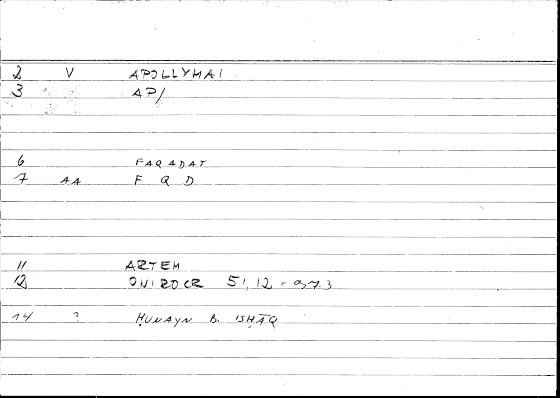 2 V APOLLYMAI
3 AP/
6 FAQADAT
7 AA F Q D
11 ARTEM
12 ONIROCR 51,12 - 973
14 ? ḤUNAYN B. ISḤĀQ